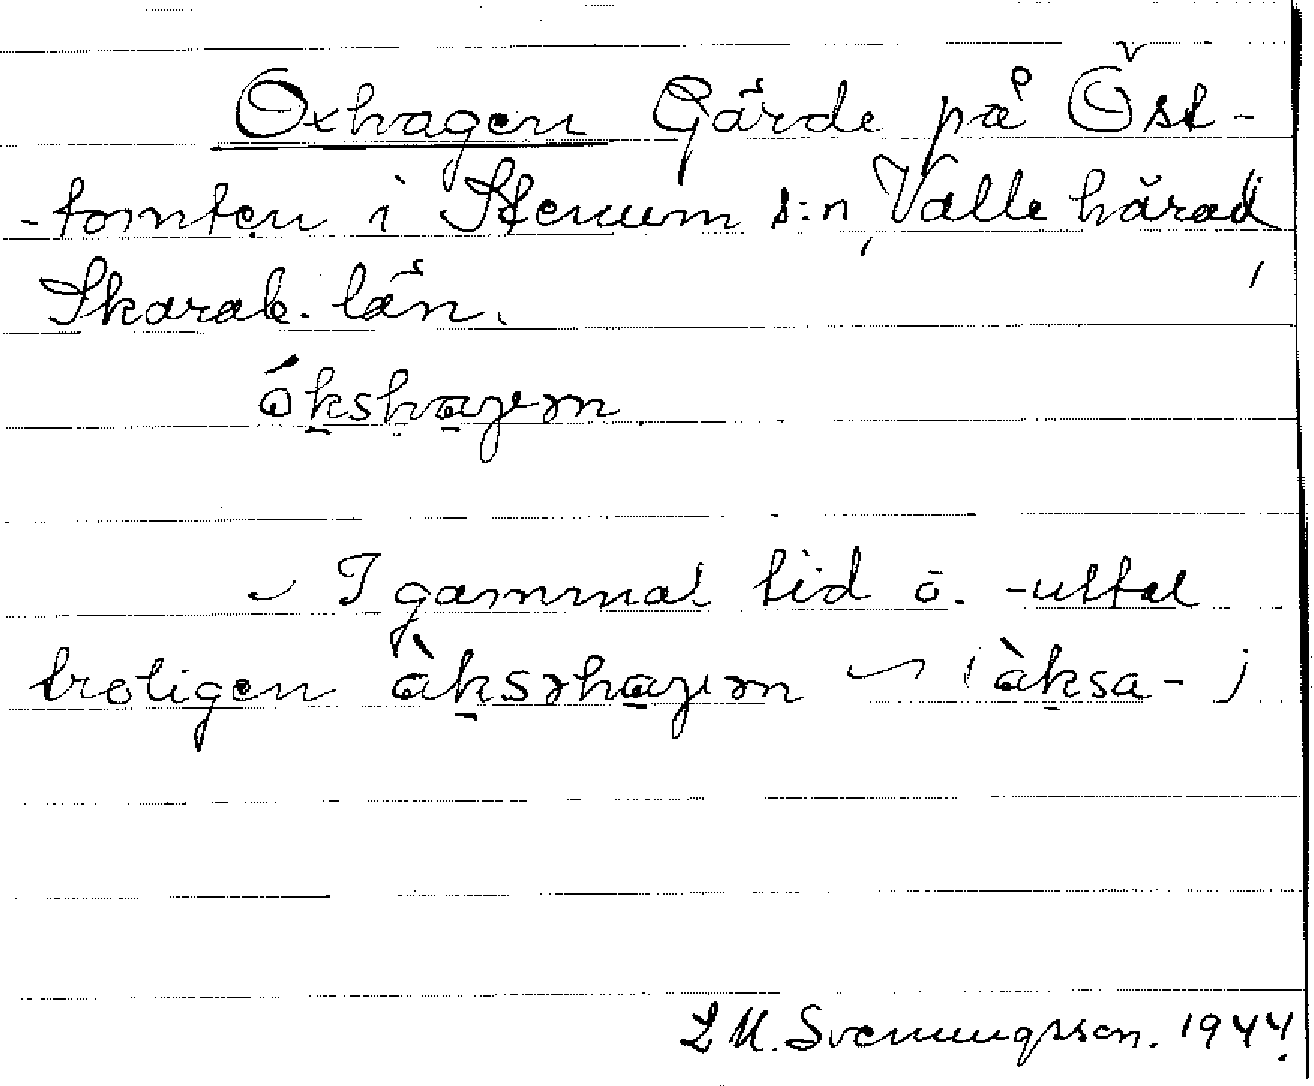 Oxhagen Gärde på Öst-
-tomten i Stenum s:n, Valle härad,
Skarab. län.
ákshagen
– I gammal tid o. -uttal
troligen àksahagen – (àksa-)
L M. Svenungsson. 1944.